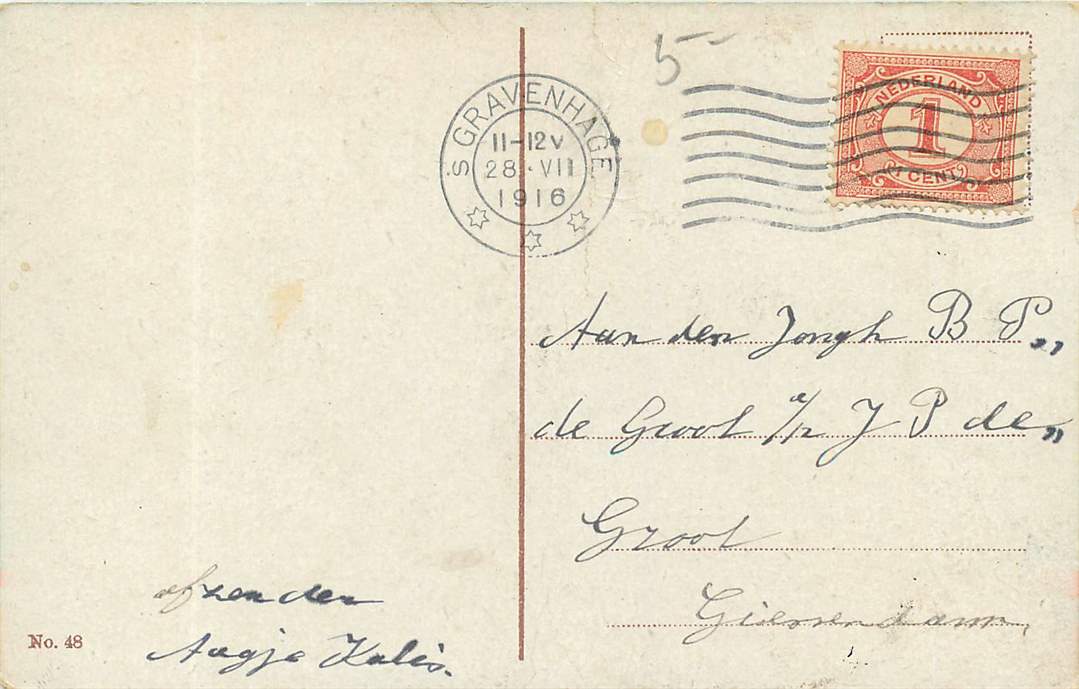 5-
'S GRAVENHAGE
11-12V
28.VII
1916
NEDERLAND
1
1 CENT
Aan den Jongh B P„
de Groot a/z J P de„
Groot
Giessendam
afzender
Aagje Kalis.
No. 48